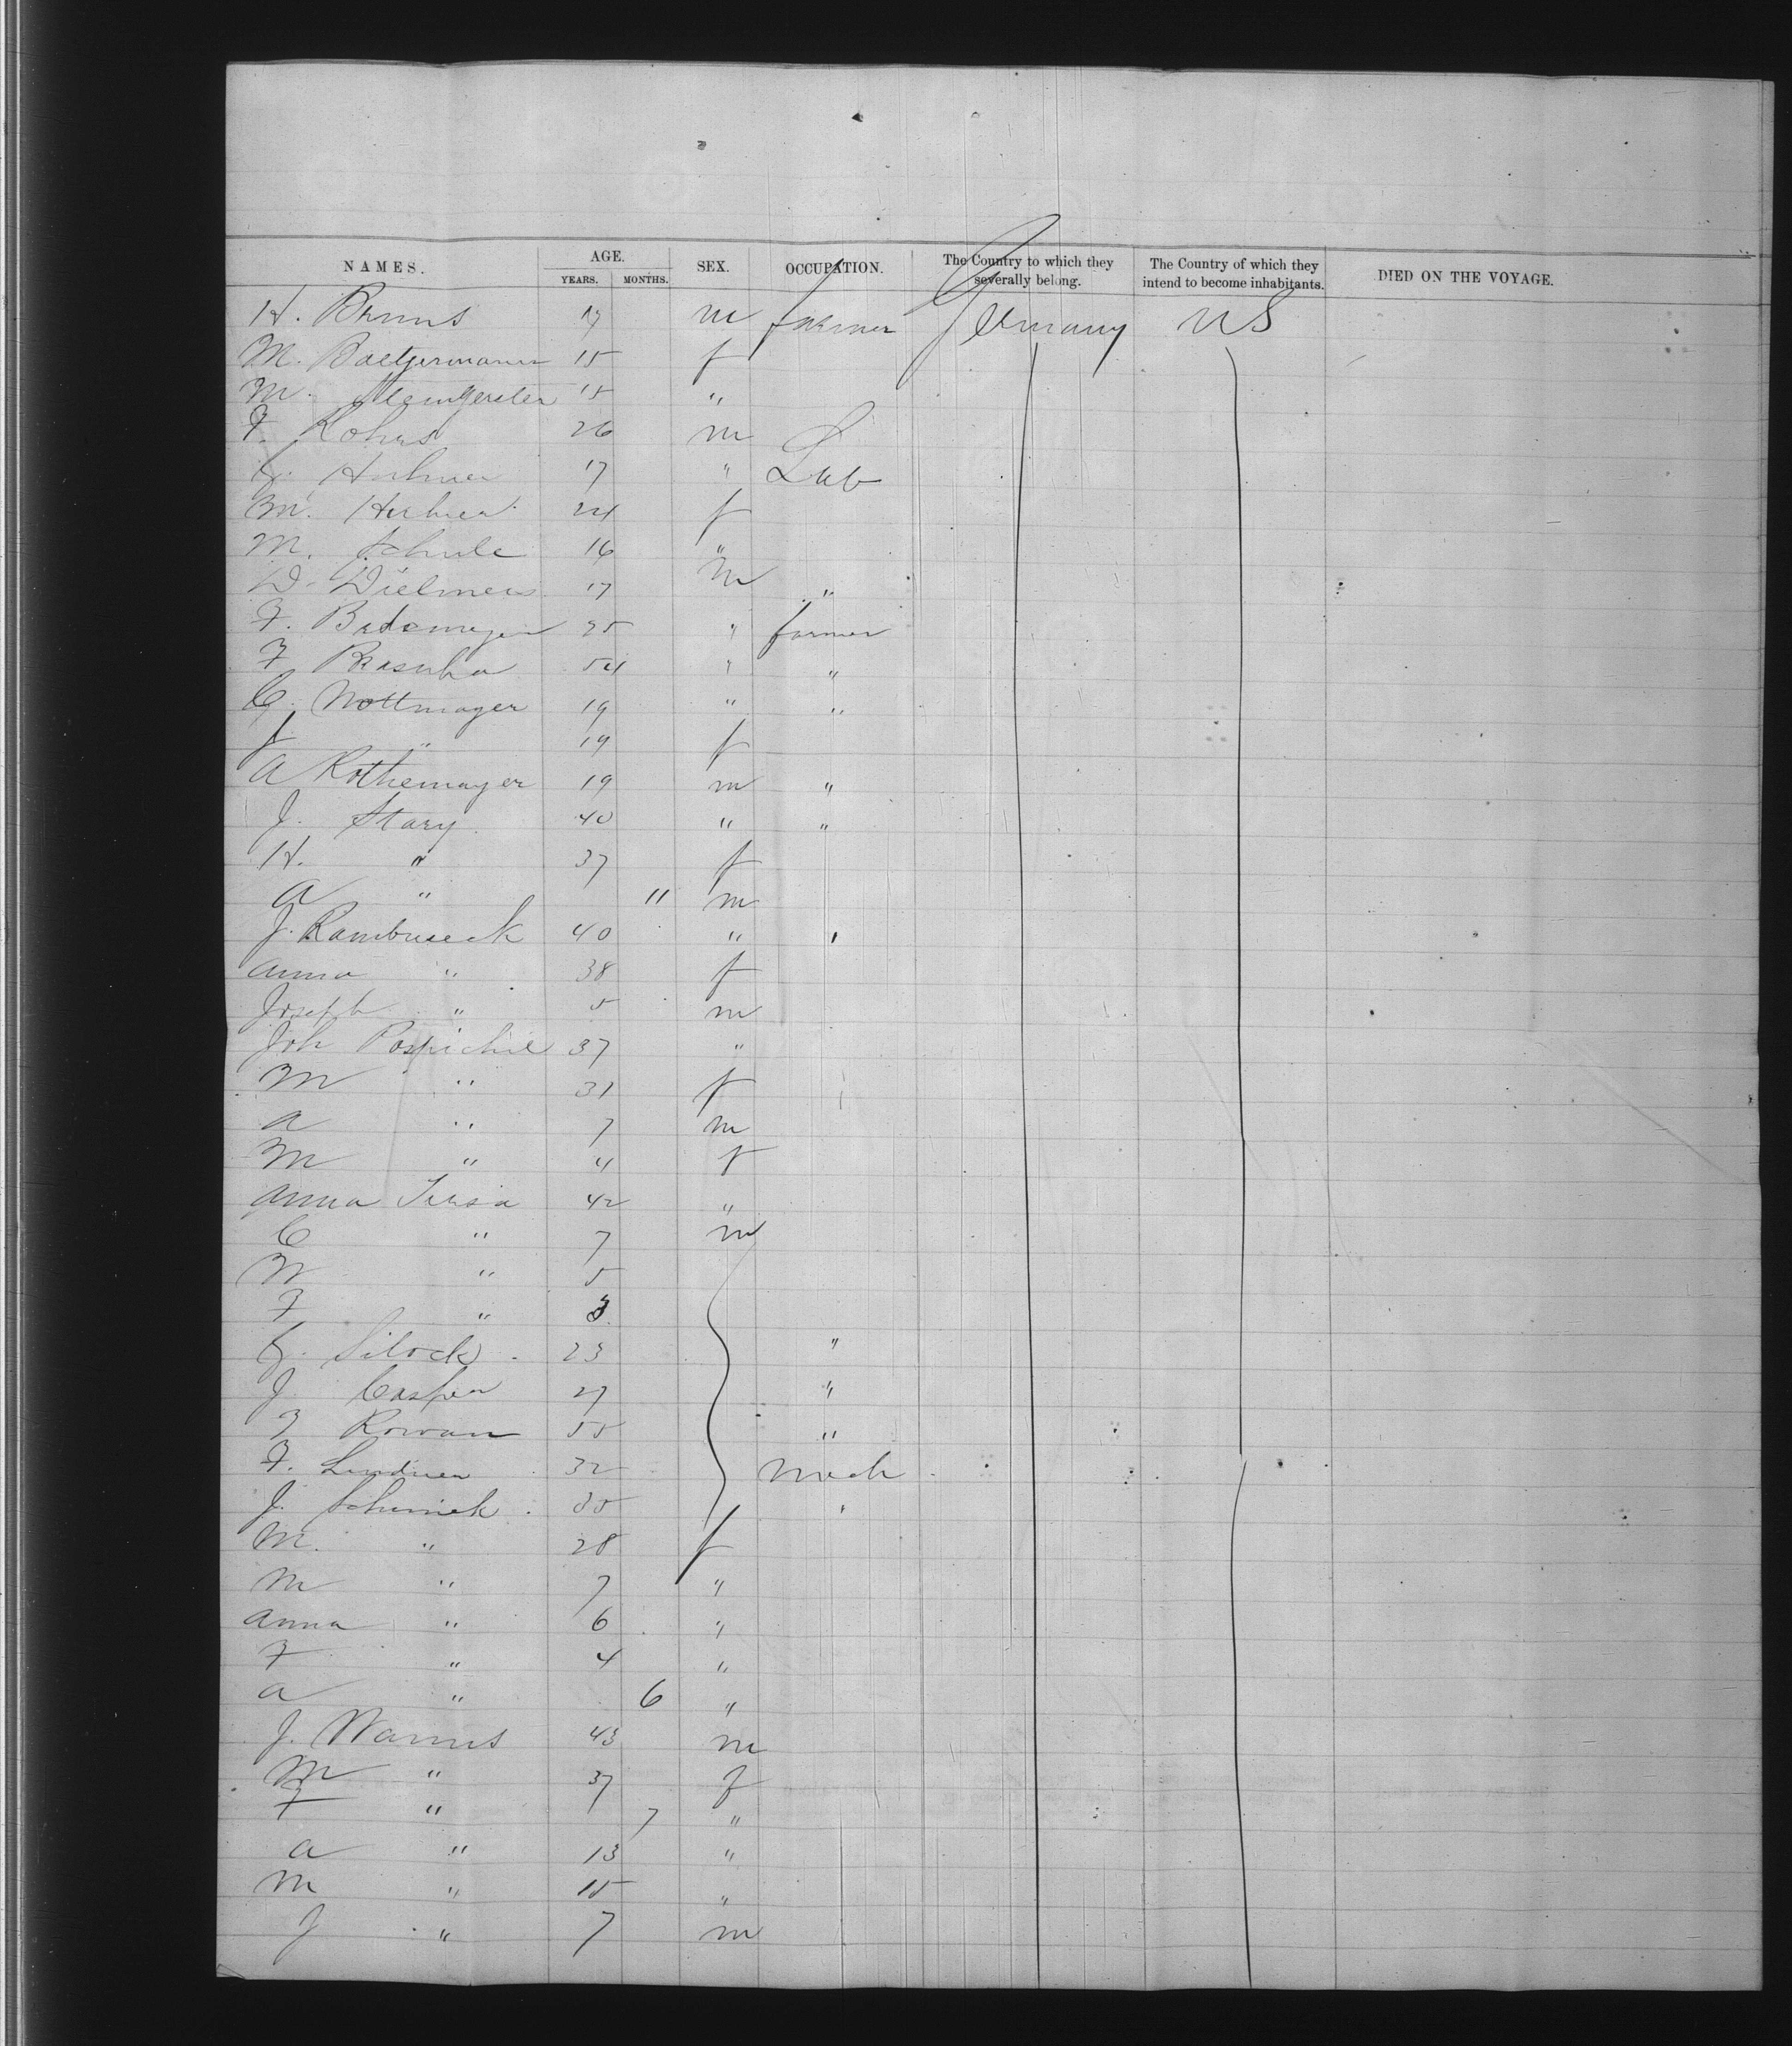 NAMES. AGE. YEARS. MONTHS. SEX. OCCUPATION. The Country to which they severally belong. The Country of which they intend to become inhabitants. DIED ON THE VOYAGE.
H. Bruns 17 m farmer Germany US
M. 15 f
M. 15 "
F. Kohrs 26 m
17 " Lab
M. 24 f
M. Schule 16 "
D. Dielmers 17 m "
F. 25 " farmer
F 54 " "
C. Nottmayer 19 " "
f " 19 f
A Rothemayer 19 m "
J. Stary 40 " "
H. " 37 f
A " 11 m
J. Rambuseck 40 " "
Anna " 38 f
Joseph " 5 m
Joh Pospichil 37 "
M " 31 f
A " 7 m
M " 4 f
Anna 42 "
C " 7 m
W " 5
F " 3
Silock 23 "
J Casper 27 "
F Rowan 55 "
F. Lindner 32 Mech
J. 35 "
M. " 28 f
M " 7 "
Anna " 6 "
F " 4 "
A " 6 "
J. Warnus 43 m
M " 37 f
F " 7 "
A " 13 "
M " 15 "
J " 7 m